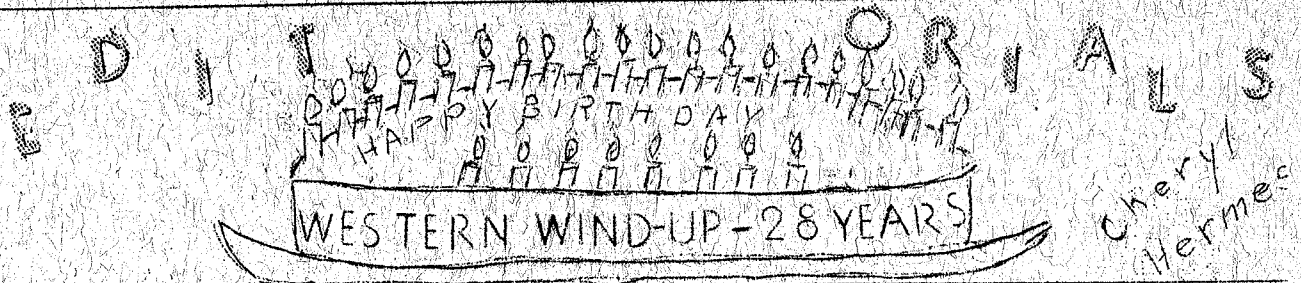 EDITORIALS
HAPPY BIRTHDAY
WESTERN WIND-UP - 28 YEARS
Cheryl
Hermes